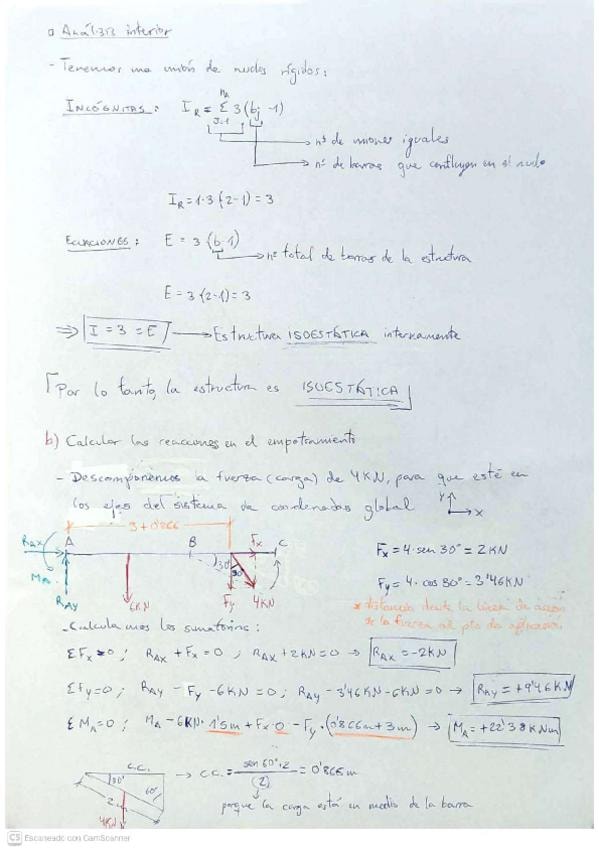 Análisis interior
- Tenemos una unión de nudos rígidos:
INCÓGNITAS: I_R = Σ 3(bj -1)
J=1
nº de uniones iguales
nº de barras que confluyen en el nudo
I_R = 1·3(2-1) = 3
ECUACIONES: E = 3(b-1)
nº total de barras de la estructura
E = 3(2-1) = 3
⇒ I = 3 = E → Estructura ISOESTÁTICA internamente
Por lo tanto, la estructura es ISOESTÁTICA
b) Calcular las reacciones en el empotramiento
- Descomponemos la fuerza (carga) de 4KN, para que esté en
los ejes del sistema de coordenadas global
Y
X
3+0'866
R_AX A B Fx C
30º
30º
M_A
R_AY 6KN Fy 4KN
Fx = 4·sen 30º = 2KN
Fy = 4·cos 30º = 3'46KN
* distancia desde la línea de acción
de la fuerza al pto de aplicación
- Calculamos los sumatorios:
ΣFx = 0; R_AX + Fx = 0; R_AX + 2KN = 0 → R_AX = -2KN
ΣFy = 0; R_AY - Fy - 6KN = 0; R_AY - 3'46KN - 6KN = 0 → R_AY = +9'46KN
ΣM_A = 0; M_A - 6KN·1'5m + Fx·0 - Fy·(0'866m + 3m) → M_A = +22'38KNm
C.C.
60º
2
4KN
→ C.C. = sen 60º·2 / (2) = 0'866m
porque la carga está en medio de la barra
CS Escaneado con CamScanner